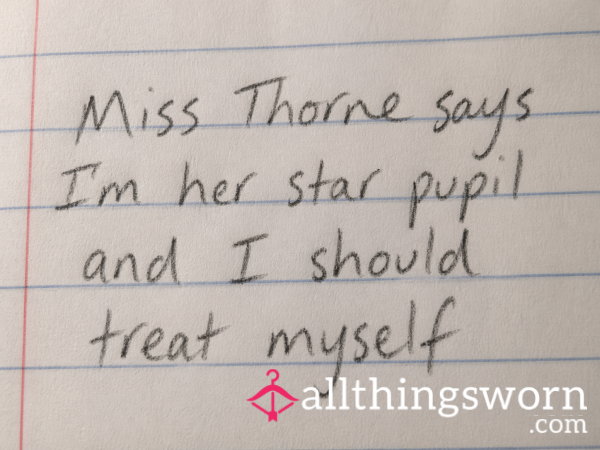 Miss Thorne says
I'm her star pupil
and I should
treat myself
allthingsworn
.com